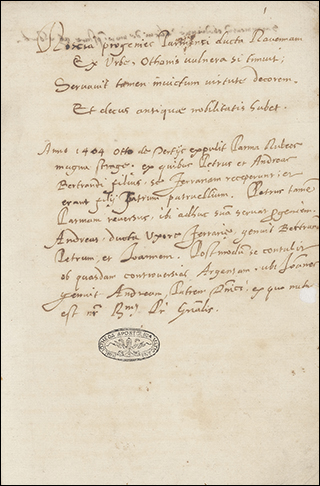 Roscia progenies Parmensi ducta
Ex Urbe. Othonis vulnera si timuit;
Servavit tamen invictum virtute decorem,
Et decus antiquae nobilitatis habet.
Anno 1404 Otto de Tertys expulit Parma Rubeos
magna strage. ex quibus Petrus et Andreas
Bertrandi filius, se Ferrariam receperunt et
erant filij Fratrum patruelium. Petrus tamen
Parmam reversus, ib adhuc suam servat progeniem
Andreas, ducta Uxore Ferrariae, genuit
Petrum, et Joannem. Postmodum se contulit
ob quasdam controversias Argentam, ubi Joannes
genuit Andream, Patrem ex quo
est